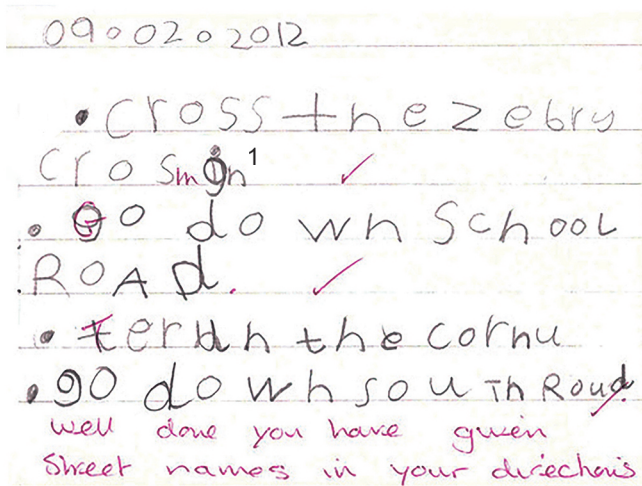 09.02.2012
• cross the zebry
crosmgn¹ ✓
• Go down School
ROAd. ✓
• terun the cornu
• go down south Roud. ✓
well done you have given
street names in your directions